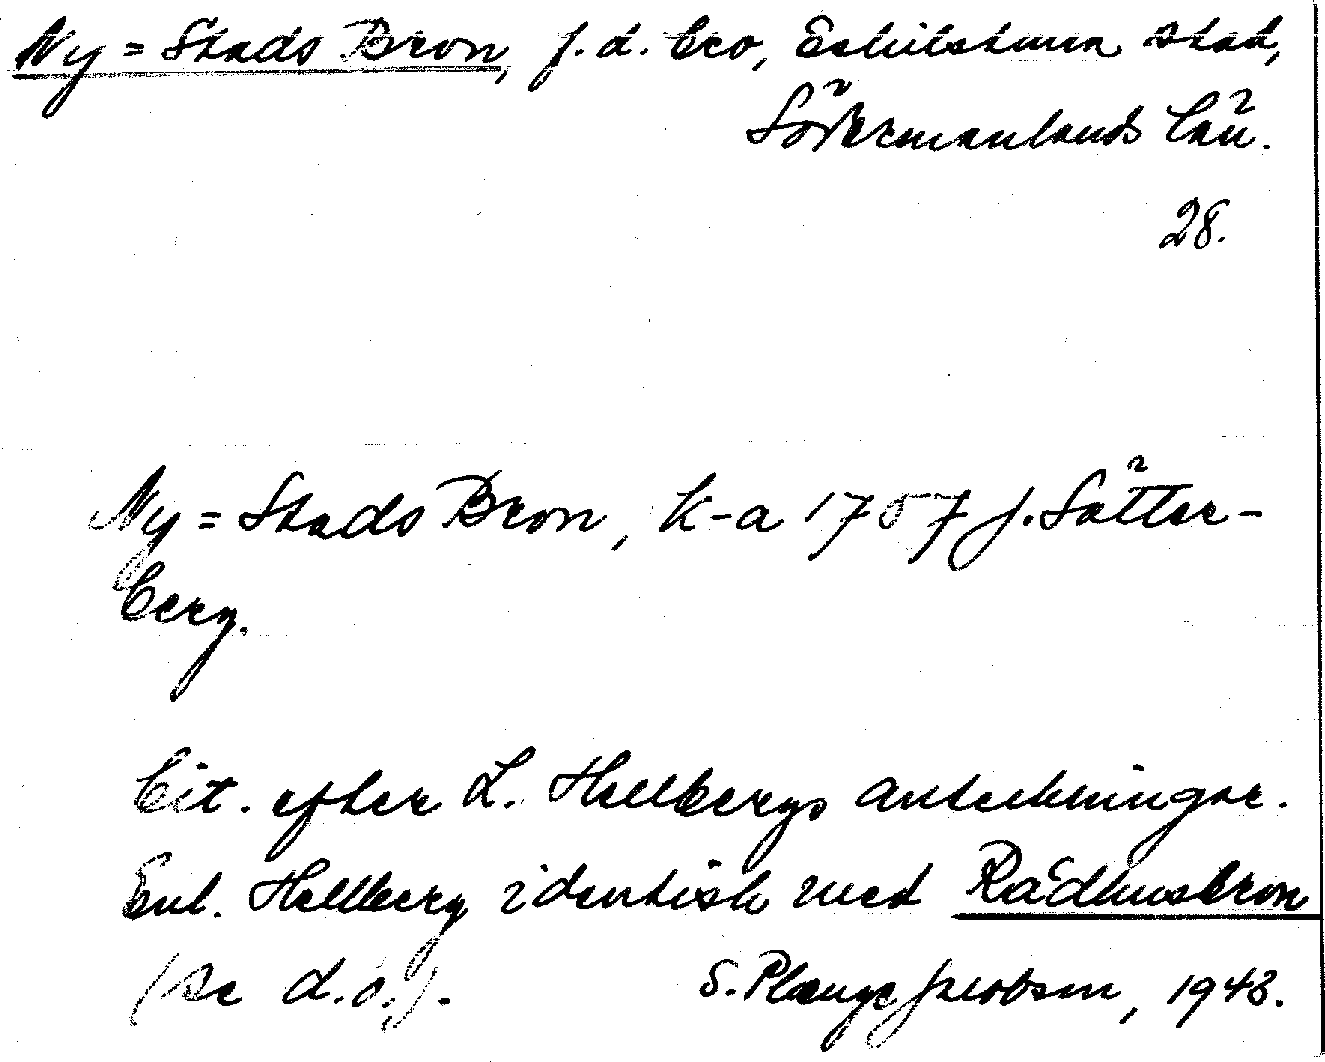 Ny=Stads Bron, f.d. bro, Eskilstuna stad,
Södermanlands län.
28.
Ny=Stads Bron, k-a 1757 f. Sätter-
berg.
Cit. efter L. Hellbergs anteckningar.
Enl. Hellberg identisk med Rådhusbron
(se d.o.). S. Plænge Jacobson, 1948.